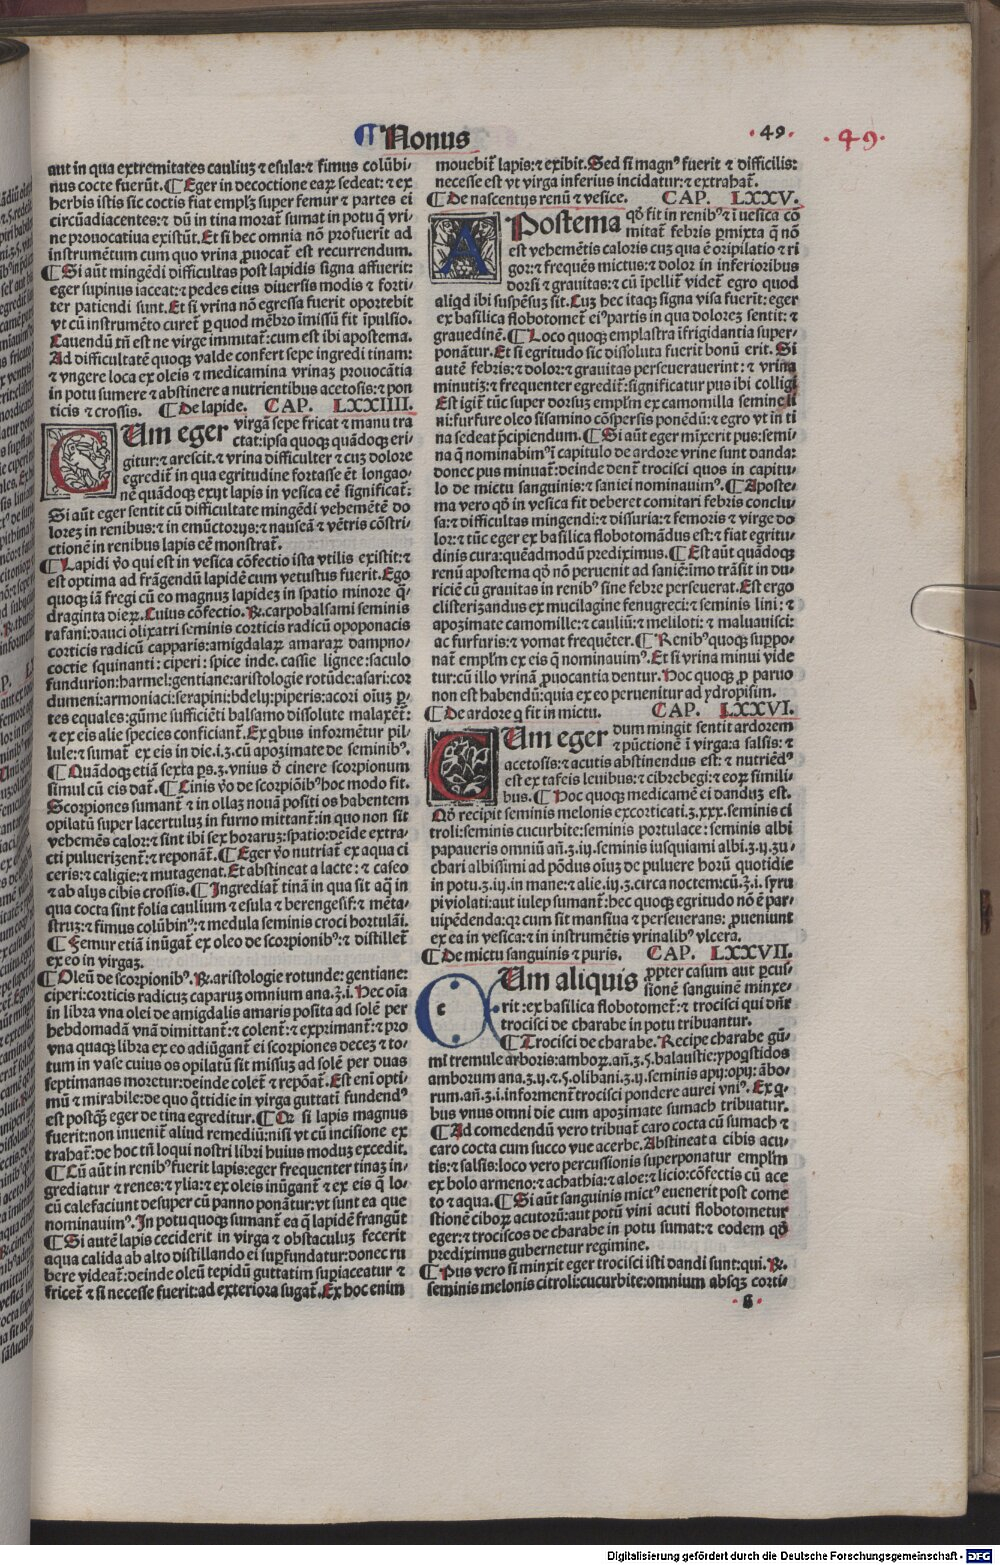 ¶ Nonus
·49·
·49·
aut in qua extremitates cauliuʒ ⁊ esula:⁊ fimus colūbi-
nus cocte fuerūt. ¶ Eger in decoctione eaꝝ sedeat: ⁊ ex
herbis istis sic coctis fiat emplꝫ super femur ⁊ partes ei
circūadiacentes: ⁊ dū in tina morat̄ sumat in potu ꝙ vri-
ne prouocatiua existūt. Et si hec omnia nō profuerit ad
instrumētum cum quo vrina ꝓuocat̄ est recurrendum.
¶ Si aūt mingēdi difficultas post lapidis signa affuerit:
eger supinus iaceat: ⁊ pedes eius diuersis modis ⁊ forti-
ter patiendi sunt. Et si vrina nō egressa fuerit oportebit
vt cū instrumēto curet̄ ꝑ quod mēbro īmissū fit īpulsio.
Cauendū tn̄ est ne virge immitat̄: cum est ibi apostema.
Ad difficultatē quoqꝫ valde confert sepe ingredi tinam:
⁊ vngere loca ex oleis ⁊ medicamina vrinaʒ prouocātia
in potu sumere ⁊ abstinere a nutrientibus acetosis: ⁊ pon
ticis ⁊ crossis. ¶ De lapide. CAP. LXXIIII.
CUm eger virgā sepe fricat ⁊ manu tra
ctat: ipsa quoqꝫ quādoqꝫ eri-
gitur: ⁊ arescit. ⁊ vrina difficulter ⁊ cuʒ dolore
egredit̄ in qua egritudine fortasse ēt longao-
nē quādoqꝫ exijt lapis in vesica eē significat̄:
Si aūt eger sentit cū difficultate mingēdi vehemētē do
loreʒ in renibus: ⁊ in emūctorijs: ⁊ nauseā ⁊ vētris cōstri-
ctionē in renibus lapis eē monstrat̄.
¶ Lapidi v̄o qui est in vesica cōfectio ista vtilis existit: ⁊
est optima ad frāgendū lapidē cum vetustus fuerit. Ego
quoqꝫ iā fregi cū eo magnuʒ lapideʒ in spatio minore q̄-
draginta dieꝝ. Cuius cōfectio. ℞. carpobalsami seminis
rafani: dauci olixatri seminis corticis radicū opoponacis
corticis radicū capparis: amigdalaꝝ amaraꝝ dampno-
coctie squinanti: ciperi: spice inde. cassie lignee: saculo
fundurion: harmel: gentiane: aristologie rotūde: asari: cor
dumeni: armoniaci: serapini: bdelij: piperis: acori oīuʒ ꝑ-
tes equales: gūme sufficiēti balsamo dissolute malaxent̄:
⁊ ex eis alie species conficiant̄. Ex qbus informētur pil-
lule: ⁊ sumat̄ ex eis in die. i. ʒ. cū apoʒimate de seminibꝰ.
¶ Quādoqꝫ etiā sexta ps. ʒ. vnius v̄o cinere scorpionum
simul cū eis dat̄. ¶ Cinis v̄o de scorpiōibꝰ hoc modo fit.
Scorpiones sumant̄ ⁊ in ollaʒ nouā positi os habentem
opilatū super lacertuluʒ in furno mittant̄: in quo non sit
vehemēs calor: ⁊ sint ibi sex horaruʒ: spatio: deīde extra-
cti pulueriʒent̄: ⁊ reponāt̄. ¶ Eger v̄o nutriat̄ ex aqua ci
ceris: ⁊ caligie: ⁊ mutagenat. Et abstineat a lacte: ⁊ caseo
⁊ ab alijs cibis crossis. ¶ Ingrediat̄ tinā in qua sit aq̄ in
qua cocta sint folia caulium ⁊ esula ⁊ berengesif: ⁊ mēta-
struʒ: ⁊ fimus colūbinꝰ: ⁊ medula seminis croci hortulāi.
¶ Femur etiā inūgat̄ ex oleo de scorpionibꝰ: ⁊ distillet̄
ex eo in virgaʒ.
¶ Oleū de scorpionibꝰ. ℞. aristologie rotunde: gentiane:
ciperi: corticis radicuʒ caparuʒ omnium ana. ʒ̄. i. Hec oīa
in libra vna olei de amigdalis amaris posita ad solē per
hebdomadā vnā dimittant̄: ⁊ colent̄: ⁊ exprimant̄: ⁊ pro
vna quaqꝫ libra ex eo adiūgant̄ ei scorpiones deceʒ ⁊ to-
tum in vase cuius os opilatū sit missuʒ ad solē: per duas
septimanas moretur: deinde colet̄ ⁊ repōat̄. Est eni opti-
mū ⁊ mirabile: de quo q̄ttidie in virga guttati fundendꝰ
est postqꝫ eger de tina egreditur. ¶ Oꝛ si lapis magnus
fuerit: non inuenit̄ aliud remediū: nisi vt cū incisione ex
trahat̄: de hoc tn̄ loqui nostri libri huius moduʒ excedit.
¶ Cū aūt in renibꝰ fuerit lapis: eger frequenter tinaʒ in-
grediatur ⁊ renes: ⁊ ylia: ⁊ ex oleis inūgant̄ ⁊ ex eis q̄ lo-
cū calefaciunt desuper cū panno ponātur: vt sunt ea que
nominauimꝰ. In potu quoqꝫ sumant̄ ea q̄ lapidē frangūt
¶ Si autē lapis ceciderit in virga ⁊ obstaculuʒ fecerit
aqua calida ab alto distillando ei suꝑfundatur: donec ru
bere videat̄: deinde oleū tepidū guttatim suꝑiaceatur ⁊
fricet̄ ⁊ si necesse fuerit: ad exteriora sugat̄. Ex hoc enim
mouebit̄ lapis: ⁊ exibit. Sed si magnꝰ fuerit ⁊ difficilis:
necesse est vt virga inferius incidatur: ⁊ extrahat̄.
¶ De nascentijs renū ⁊ vesice. CAP. LXXV.
APostema qd̄ fit in renibꝰ ⁊ ī vesica co
mitat̄ febris ꝑmixta q̄ nō
est vehemētis caloris cuʒ qua ē oripilatio ⁊ ri
gor: ⁊ frequēs mictus: ⁊ dolor in inferioribus
dorsi ⁊ grauitas: ⁊ cū īpellit̄ videt̄ egro quod
aliqd ibi suspēsuʒ sit. Cuʒ hec itaqꝫ signa visa fuerit: eger
ex basilica flobotomet̄ eiꝰ partis in qua doloreʒ sentit: ⁊
grauedinē. ¶ Loco quoqꝫ emplastra īfrigidantia super-
ponātur. Et si egritudo sic dissoluta fuerit bonū erit. Si
autē febris: ⁊ dolor: ⁊ grauitas perseuerauerint: ⁊ vrina
minutiʒ: ⁊ frequenter egredit̄: significatur pus ibi colligi
Est igit̄ tūc super dorsuʒ emplꝫ ex camomilla semine li
ni: furfure oleo sisamino cōspersis ponēdū: ⁊ egro vt in ti
na sedeat p̄cipiendum. ¶ Si aūt eger mīxerit pus: semi-
na q̄ nominabimꝰ ī capitulo de ardore vrine sunt danda:
donec pus minuat̄: deinde dent̄ trocisci quos in capitu-
lo de mictu sanguinis: ⁊ saniei nominauimꝰ. ¶ Aposte-
ma vero qd̄ in vesica fit deberet comitari febris conclu-
sa: ⁊ difficultas mingendi: ⁊ dissuria: ⁊ femoris ⁊ virge do
lor: ⁊ tūc eger ex basilica flobotomādus est: ⁊ fiat egritu-
dinis cura: quēadmodū prediximus. ¶ Est aūt quādoqꝫ
renū apostema qd̄ nō peruenit ad saniē: īmo trāsit in du-
riciē cū grauitas in renibꝰ sine febre perseuerat. Est ergo
clisteriʒandus ex mucilagine fenugreci: ⁊ seminis lini: ⁊
apoʒimate camomille: ⁊ cauliū: ⁊ meliloti: ⁊ maluauisci:
ac furfuris: ⁊ vomat frequēter. ¶ Renibꝰ quoqꝫ suppo-
nat̄ emplꝫ ex eis q̄ nominauimꝰ. Et si vrina minui vide
tur: cū illo vrinā ꝓuocantia dentur. Hoc quoqꝫ ꝓ paruo
non est habendū: quia ex eo peruenitur ad ydropisim.
¶ De ardore q fit in mictu. CAP. LXXVI.
CUm eger dum mingit sentit ardorem
⁊ pūctionē ī virga: a salsis: ⁊
acetosis: ⁊ acutis abstinendus est: ⁊ nutriēdꝰ
est ex tafeis leuibus: ⁊ cibrebegi: ⁊ eoꝝ simili-
bus. ¶ Hoc quoqꝫ medicamē ei danduʒ est.
Qd̄ recipit seminis melonis excorticati. ʒ. xxx. seminis ci
troli: seminis cucurbite: seminis portulace: seminis albi
papaueris omniū an̄. ʒ. iij. seminis iusquiami albi. ʒ. ij. ʒu-
chari albissimi ad pōdus oīuʒ de puluere horū quotidie
in potu. ʒ. iij. in mane: ⁊ alie. iij. ʒ. circa noctem: cū. ʒ̄. i. syru
pi violati: aut iulep sumant̄: hec quoqꝫ egritudo nō ē par-
uipēdenda: qꝛ cum sit mansiua ⁊ perseuerans: ꝓueniunt
ex ea in vesica: ⁊ in instrumētis vrinalibꝰ vlcera.
¶ De mictu sanguinis ⁊ puris. CAP. LXXVII.
c
CUm aliquis ꝓpter casum aut ꝑcus-
sionē sanguinē minxe-
rit: ex basilica flobotomet̄: ⁊ trocisci qui dn̄r
trocisci de charabe in potu tribuantur.
¶ Trocisci de charabe. Recipe charabe gū-
mi tremule arboris: amboꝝ. an̄. ʒ. 5. balaustie: ypogstidos
amborum ana. ʒ. ij. ⁊. 5. olibani. ʒ. ij. seminis apij: opij: ābo-
rum. an̄. ʒ. i. informent̄ trocisci pondere aurei vniꝰ. Ex q̄-
bus vnus omni die cum apoʒimate sumach tribuatur.
¶ Ad comedendū vero tribuat̄ caro cocta cū sumach ⁊
caro cocta cum succo vue acerbe. Abstineat a cibis acu-
tis: ⁊ salsis: loco vero percussionis superponatur emplꝫ
ex bolo armeno: ⁊ achathia: ⁊ aloe: ⁊ licio: cōfectis cū ace
to ⁊ aqua. ¶ Si aūt sanguinis mictꝰ euenerit post come
stionē ciboꝝ acutorū: aut potū vini acuti flobotometur
eger: ⁊ trociscos de charabe in potu sumat: ⁊ eodem qd̄
prediximus gubernetur regimine.
¶ Pus vero si minxit eger trocisci isti dandi sunt: qui. ℞.
seminis melonis citroli: cucurbite: omnium absqꝫ corti-
·G·
Digitalisierung gefördert durch die Deutsche Forschungsgemeinschaft - DFG